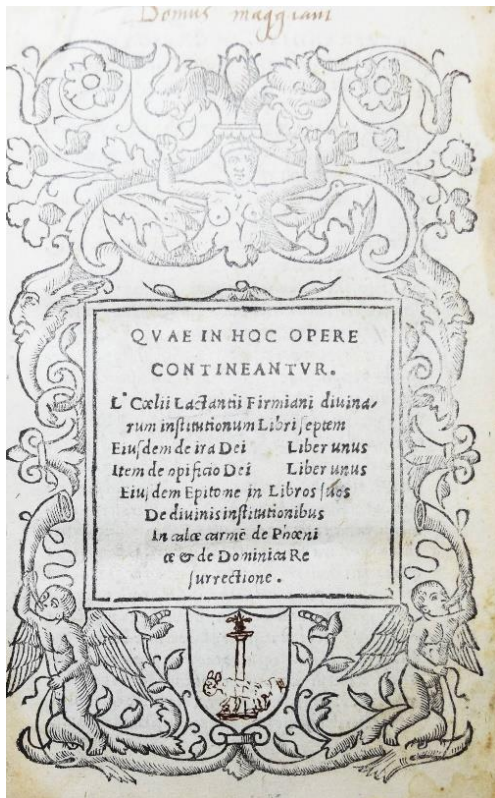 Domus maggiani
QVAE IN HOC OPERE
CONTINEANTVR.
L. Cœlii Lactantii Firmiani diuina-
rum institutionum Libri septem
Eiusdem de ira Dei Liber unus
Item de opificio Dei Liber unus
Eiusdem Epitome in Libros suos
De diuinis institutionibus
In calce carmē de Phœni
ce & de Dominica Re
surrectione.